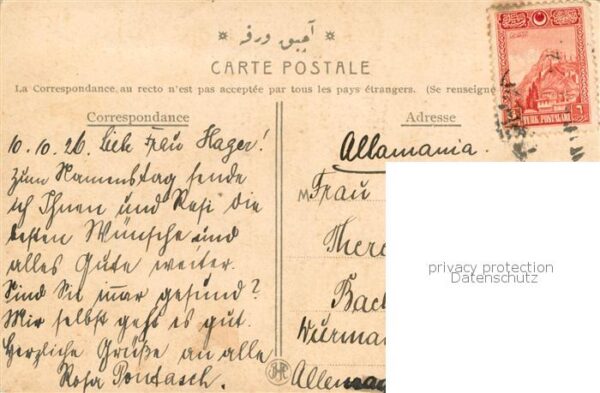 آچيق ورقه
CARTE POSTALE
La Correspondance au recto n'est pas acceptée par tous les pays étrangers. (Se renseigne
Correspondance
Adresse
10.10.26. Liebe Frau Hager!
zum Namenstag sende
ich Ihnen und Resi die
besten Wünsche und
alles Gute weiter.
Sind Sie imer gesund?
Mir selbst gehts es gut.
Herzliche Grüße an alle
Rosa Pontasch.
Allamania.
M
Frau
There
Bach
Würman
Allem
TURK POSTALARI
6
privacy protection
Datenschutz